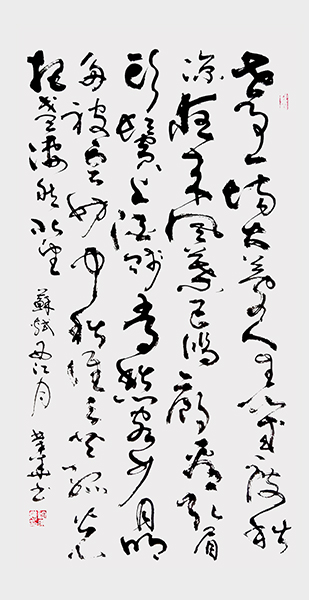 世事一場大夢人生幾度秋
涼夜來風葉已鳴廊看取眉
頭鬢上酒賤常愁客少月明
多被雲妨中秋誰與共孤光
把盞凄然北望 蘇軾西江月 書